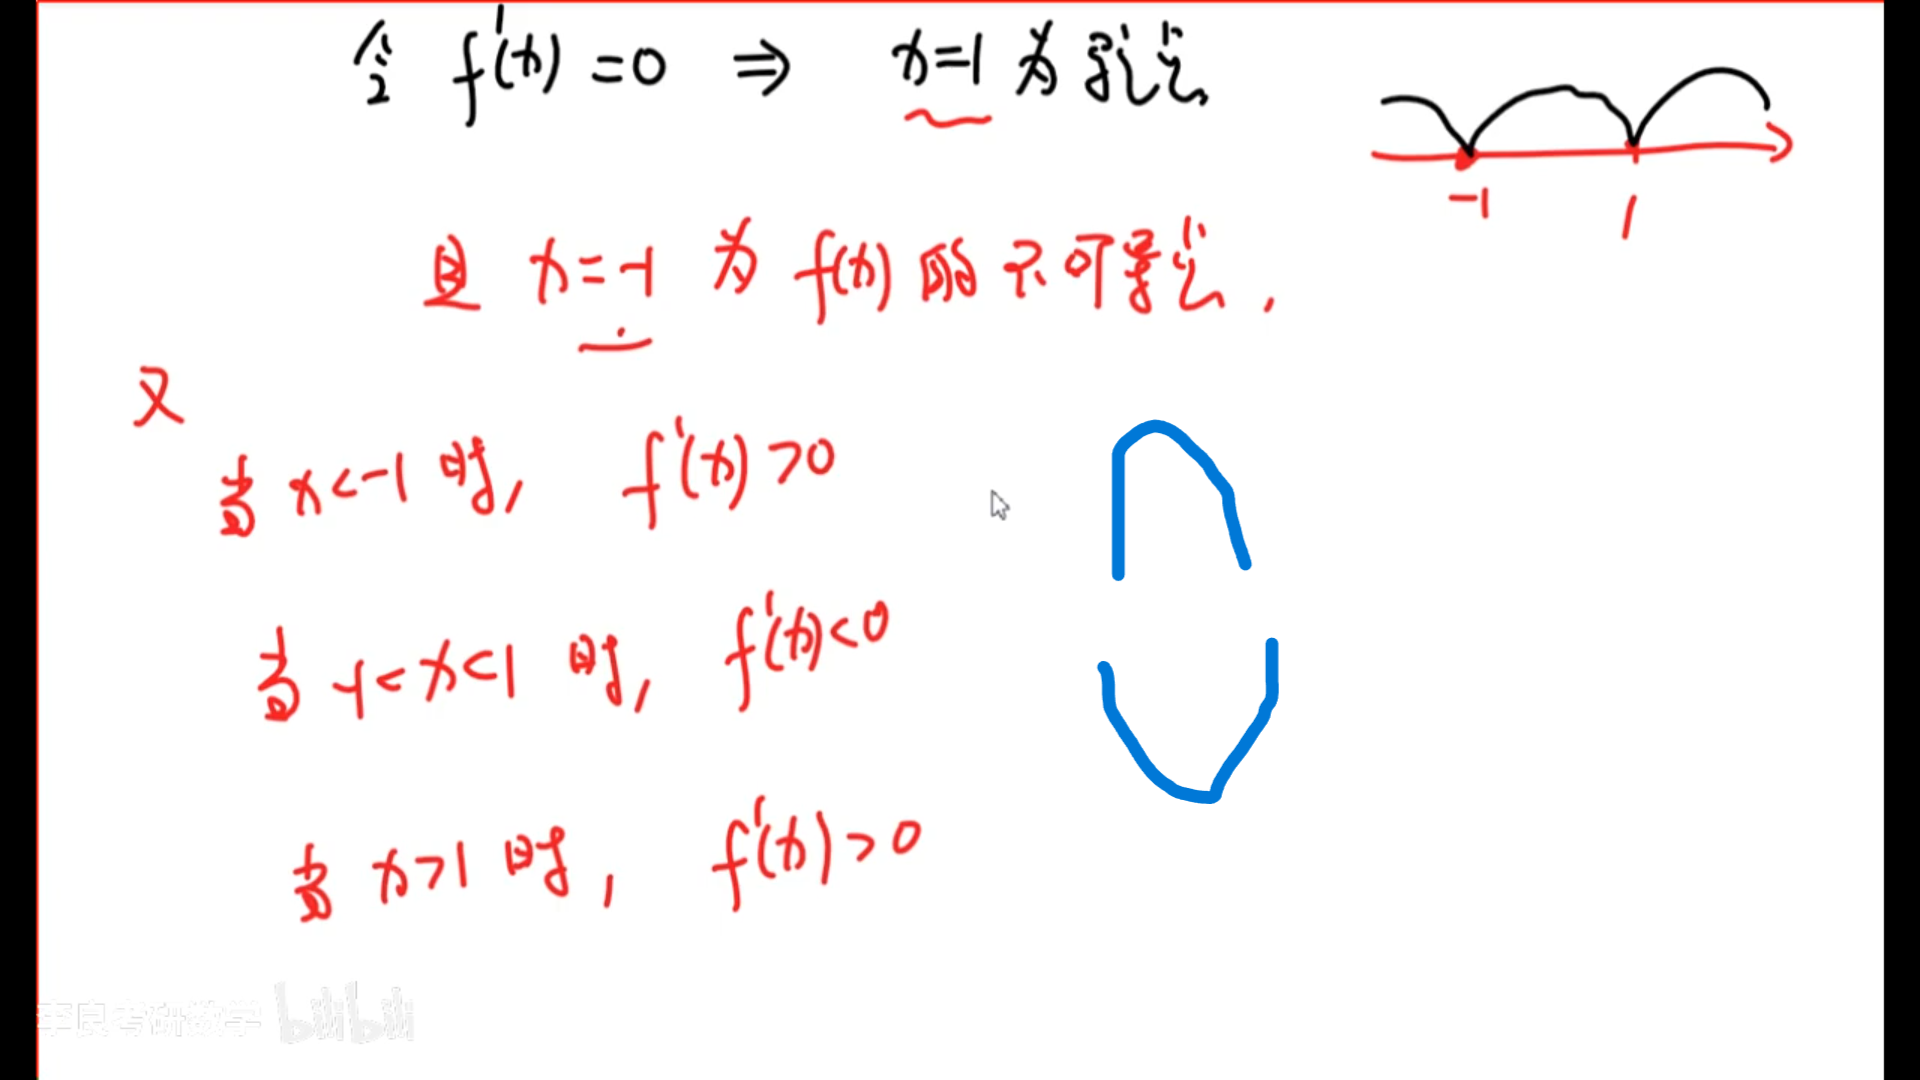 令 f'(x)=0 ⇒ x=1 为驻点
-1 1
且 x=-1 为 f(x) 的不可导点,
又
当 x<-1 时, f'(x)>0
当 -1<x<1 时, f'(x)<0
当 x>1 时, f'(x)>0
李良考研数学 bilibili